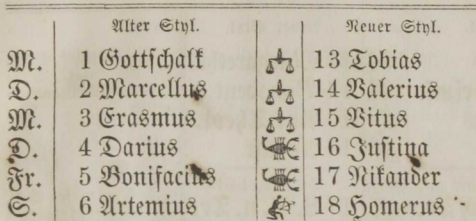 Alter Styl. Neuer Styl.
M. 1 Gottschalk 13 Tobias
D. 2 Marcellus 14 Valerius
M. 3 Erasmus 15 Vitus
D. 4 Darius 16 Justina
Fr. 5 Bonifacius 17 Nikander
S. 6 Artemius 18 Homerus